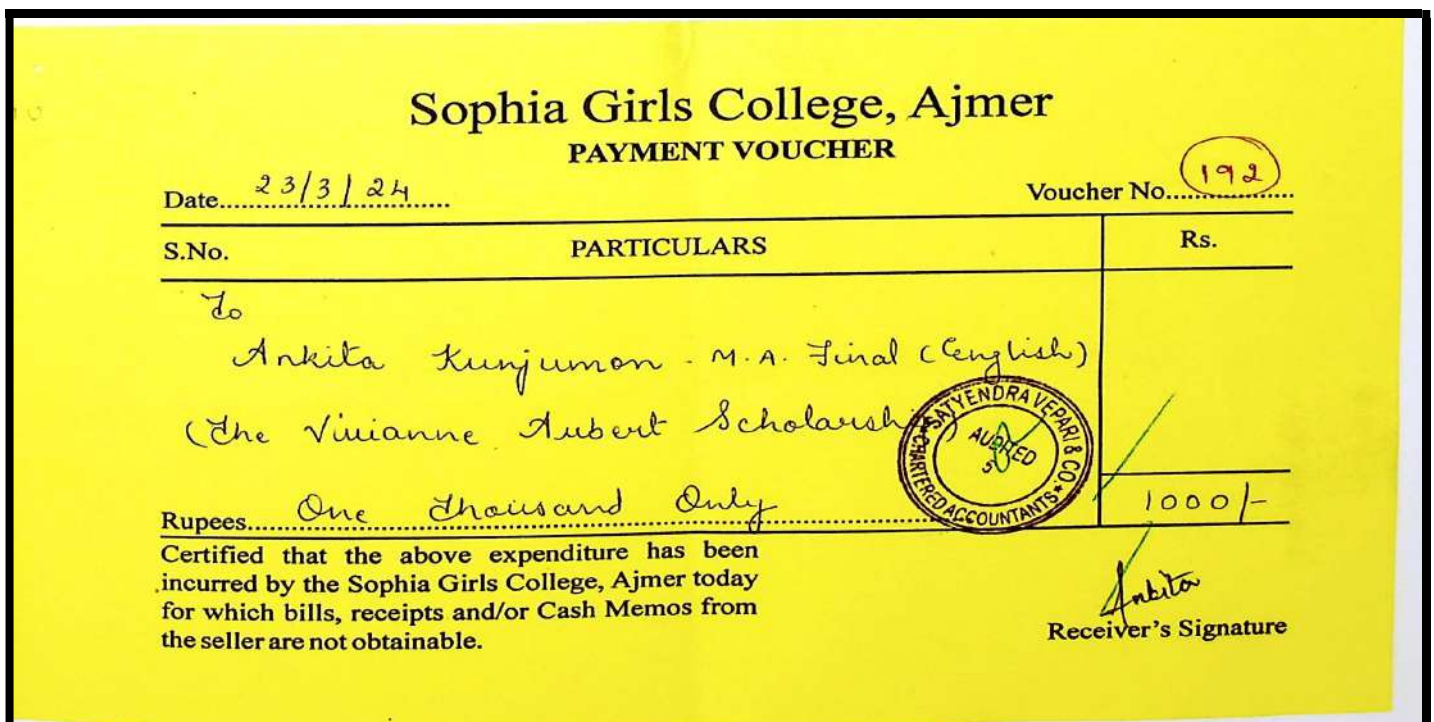 Sophia Girls College, Ajmer
PAYMENT VOUCHER
Date 23/3/24 Voucher No. 192
S.No. PARTICULARS Rs.
To
Ankita Kunjumon - M.A. Final (English)
(The Vivianne Aubert Scholarsh
SATYENDRA VEPARI & CO.
AUDITED
CHARTERED ACCOUNTANTS
Rupees One Thousand Only 1000/-
Certified that the above expenditure has been
incurred by the Sophia Girls College, Ajmer today
for which bills, receipts and/or Cash Memos from
the seller are not obtainable.
Ankita
Receiver's Signature